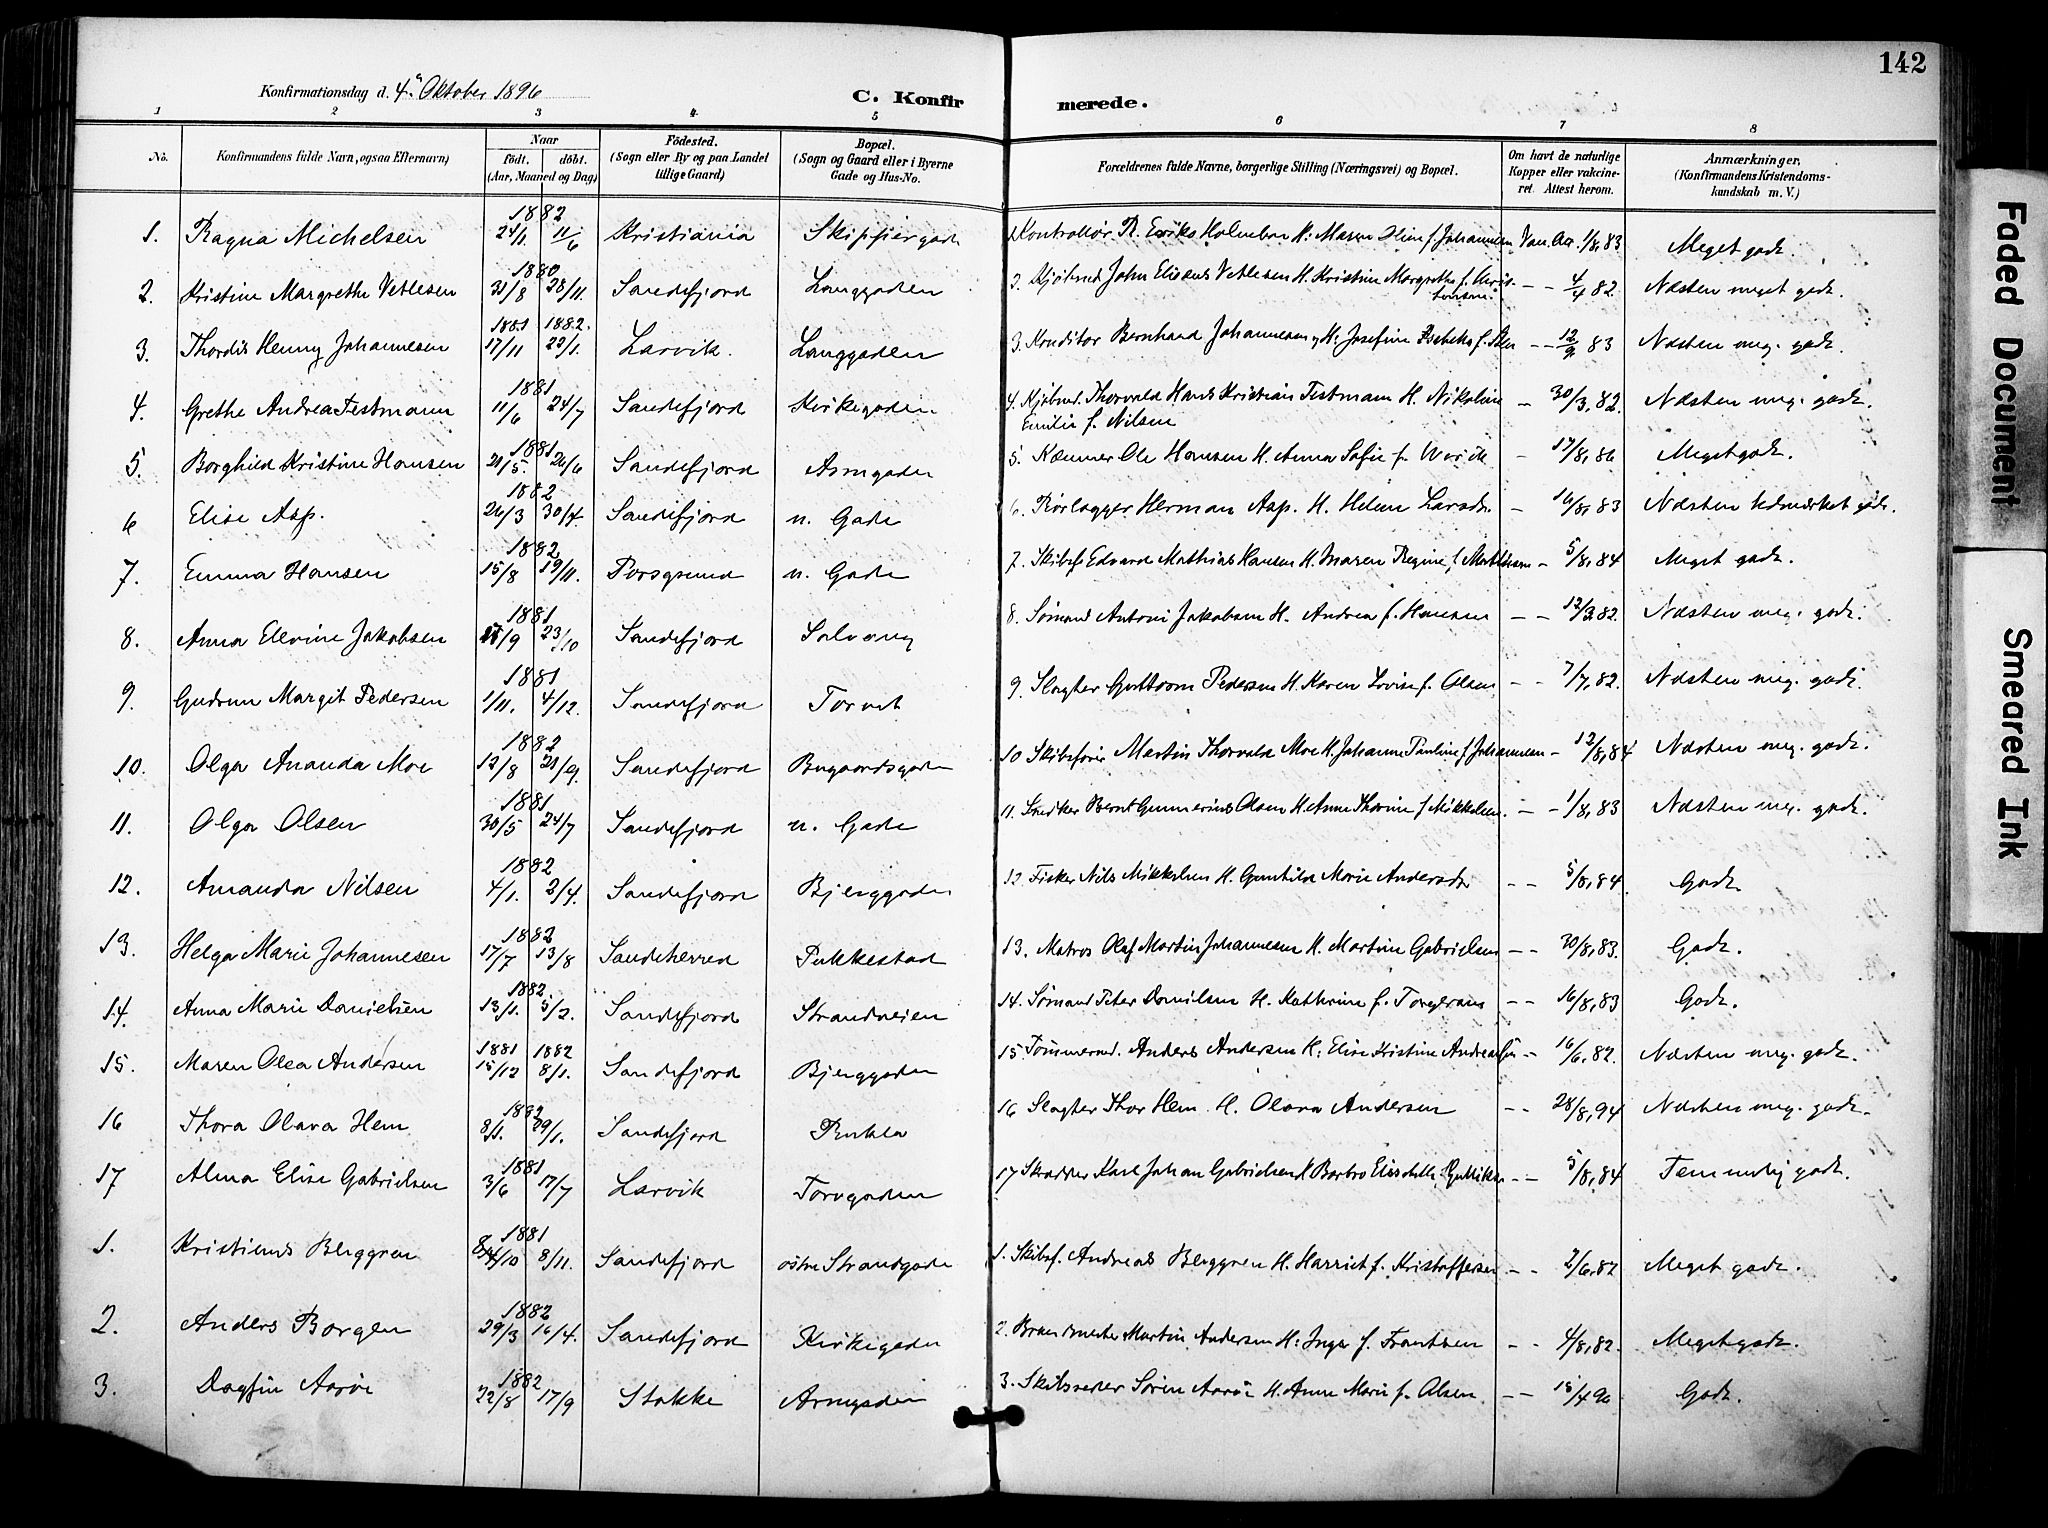 142
Konfirmationsdag d. 4de Oktober 1896
C. Konfirmerede.
1 2 3 4 5 6 7 8
No. Konfirmandens fulde Navn, ogsaa Efternavn) Naar født. døbt. (Aar, Maaned og Dag) Fødested. (Sogn eller By og paa Landet tillige Gaard) Bopæl. (Sogn og Gaard eller i Byerne Gade og Hus-No. Forældrenes fulde Navne, borgerlige Stilling (Næringsvei) og Bopæl. Om havt de naturlige Kopper eller vakcineret. Attest herom. Anmærkninger, (Konfirmandens Kristendomskundskab m. V.)
1. Ragna Michelsen 1882 24/1. 11/6 Kristiania Skippergade Kontrollør R. Eriks Holmebon H. Maren f. Johannesen Vac. Att. 1/8, 83 Meget godt.
2. Kristine Margrethe Vetlesen 1880 31/8 28/11. Sandefjord Langgaden 2. Kjøbmd John Elisæus Vetlesen H. Kristine Margrethe f. Christensen - - 4/4 82. Næsten meget godt.
3. Thordis Henny Johannesen 1881 17/11 1882. 22/1. Larvik. Langgaden 3. Konditor Bernhard Johannesen H. Josefine f. - - 12/9 83 Næsten meg. godt.
4. Grethe Andrea Testmann 1881 11/6 24/7 Sandefjord Kirkegaden 4. Kjøbmd. Thorvald Hans Kristian Testmann H. Nikoline Emilie f. Nilsen - 30/3, 82. Næsten meg. godt.
5. Borghild Kristine Hansen 1881 21/5. 26/6 Sandefjord Asmgaden 5. Kæmner Ole Hansen H. Anna Sofie f. - 17/8, 86 Meget godt.
6 Elise Asp. 1882 26/3 30/4. Sandefjord n. Gade 6. Rørlægger Herman Asp. H. Helene Larsdr. - 16/8, 83 Næsten udmærket godt.
7. Emma Hansen 1882 15/8 19/11. Porsgrund n. Gade 7. Skibsf. Edvard Mathias Hansen H. Maren Regine f. Mathisen - 5/8, 84 Meget godt.
8. Anna Elevine Jakobsen 1881 /9 23/10 Sandefjord Solvang 8. Sømand Antoni Jakobsen H. Andrea f. Hansen - - 12/3 82. Næsten meg. godt.
9. Gudrun Margit Pedersen 1881 1/11. 4/12. Sandefjord Torvet 9. Slagter Guttorm Pedersen H. Karen Lovise f. Olsen - - 7/7, 82. Næsten meg. godt.
10. Olga Ananda Moe 1882 12/8 21/9. Sandefjord Bugaardsgaden 10 Skibsfører Martin Thorvald Moe H. Johanne Pauline f. Johannesen - 12/8, 84 Næsten meg. godt.
11. Olga Olsen 1881 30/5 24/7 Sandefjord n. Gade 11. Snedker Bernt Gunnerius Olsen H. Anne Thorine f. Mikkelsen. - - 1/8, 83 Næsten meg. godt.
12. Amanda Nilsen 1882 4/1. 2/4. Sandefjord Bjerggaden 12 Fisker Nils Mikkelsen H. Gunhild Marie Andersdr - - 5/8, 84. Godt.
13. Helga Marie Johannesen 1882 17/7 13/8 Sandeherred Pukkestad 13. Matros Olaf Martin Johannesen H. Martine Gabrielsen - - 30/8, 83. Godt.
14. Anna Marie Danielsen 1882. 13/1. 5/2. Sandefjord Strandveien 14. Sømand Peter Danielsen H. Kathrine f. Torgersens - - 16/8, 83 Godt.
15. Maren Olea Andersen 1881 15/12 1882 8/1. Sandefjord Bjerggaden 15. Tømmermd. Anders Andersen H: Elise Kristine Andreas - - 16/6, 82. Næsten meg. godt.
16 Thora Olava Hem 1882 8/1. 29/1. Sandefjord Pukla 16 Slagter Thor Hem H. Olava Andersen - - 28/8, 94 Næsten meg. godt.
17 Alma Elise Gabrielsen 1881 3/6 17/7 Larvik Torvgaden 17 Skrædder Karl Johan Gabrielsen H. Barbro f. Gulliks - - 5/8, 84 Temmelig godt.
1. Kristians Berggren 1881 /10 8/11. Sandefjord østre Strandgade 1. Skibsf. Andreas Berggren H. Harriet f. Kristoffersen - - 2/6, 82 Meget godt.
2. Anders Borgen 1882 29/3 16/4. Sandefjord Kirkegaden 2. Brandmester Martin Andersen H: Inga f. Frantsen - - 4/8, 82. Meget godt.
3. Dagfin Aarøe 1882 22/8 17/9 Stokke Asmgaden 3. Skibsreder Søren Aarøe H. Anne Marie f. Olsen - - 15/4 96 Godt.
Faded Document
Smeared Ink